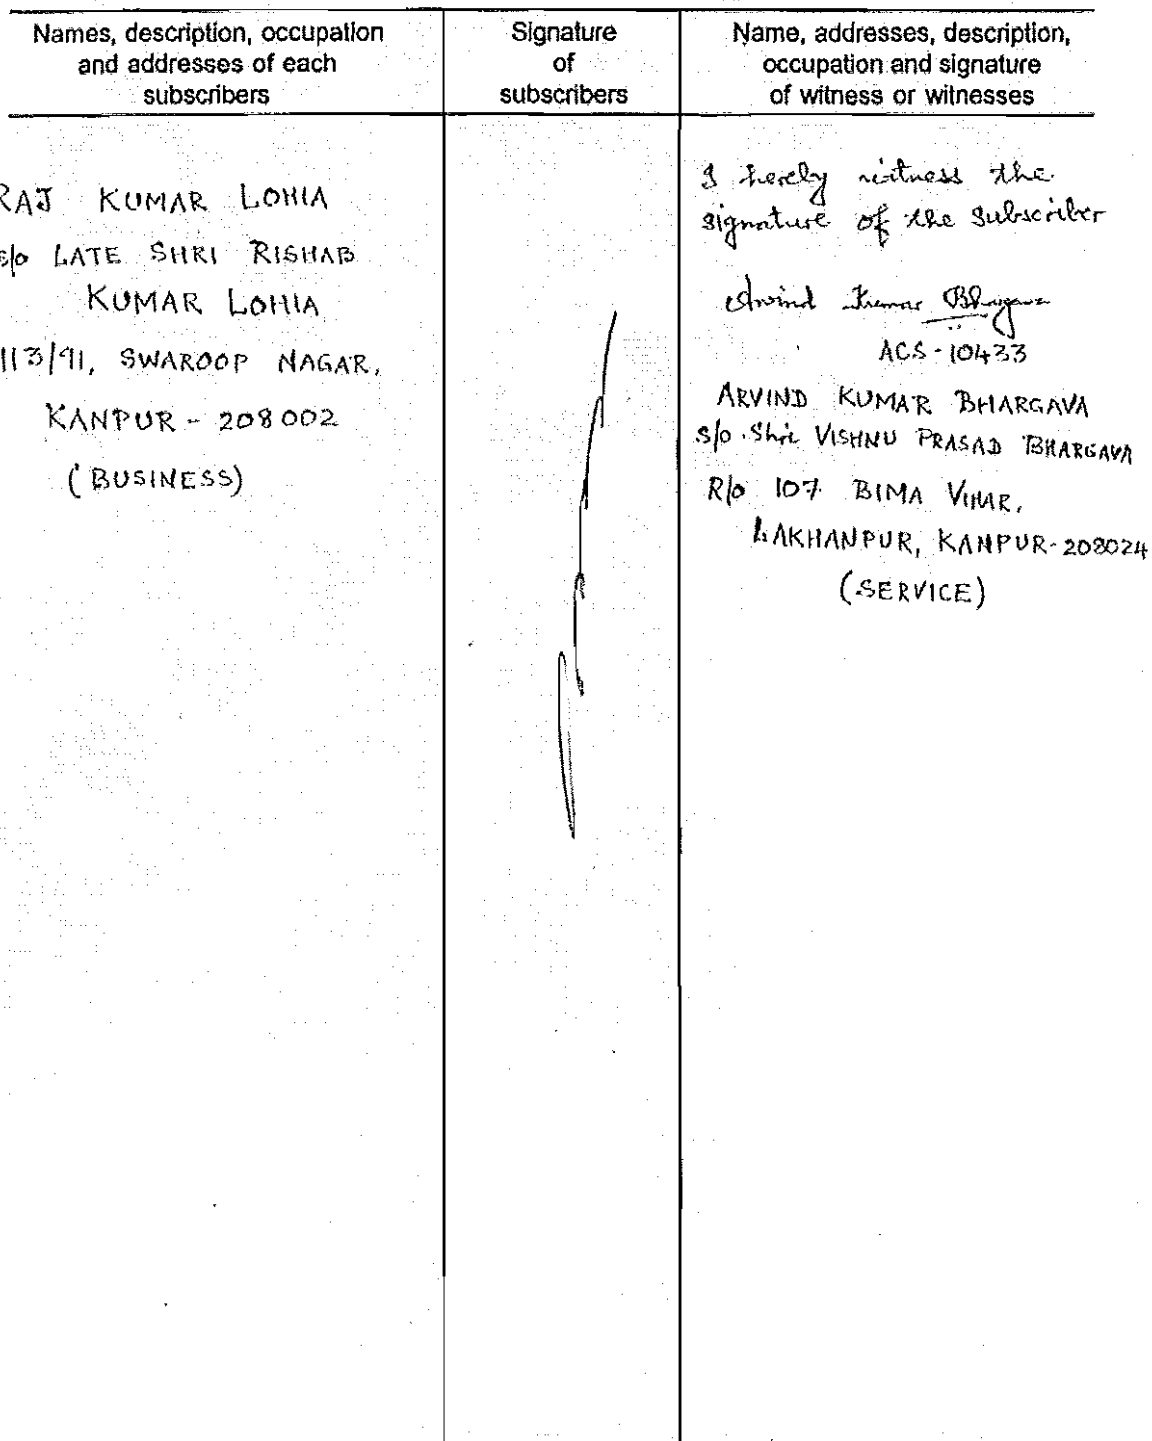 Names, description, occupation
and addresses of each
subscribers
Signature
of
subscribers
Name, addresses, description,
occupation and signature
of witness or witnesses
RAJ KUMAR LOHIA
s/o LATE SHRI RISHAB
KUMAR LOHIA
113/91, SWAROOP NAGAR,
KANPUR - 208002
(BUSINESS)
I hereby witness the
signature of the subscriber
Arvind Kumar Bhargava
ACS-10433
ARVIND KUMAR BHARGAVA
s/o. Shri VISHNU PRASAD BHARGAVA
R/o 107 BIMA VIHAR,
LAKHANPUR, KANPUR-208024
(SERVICE)